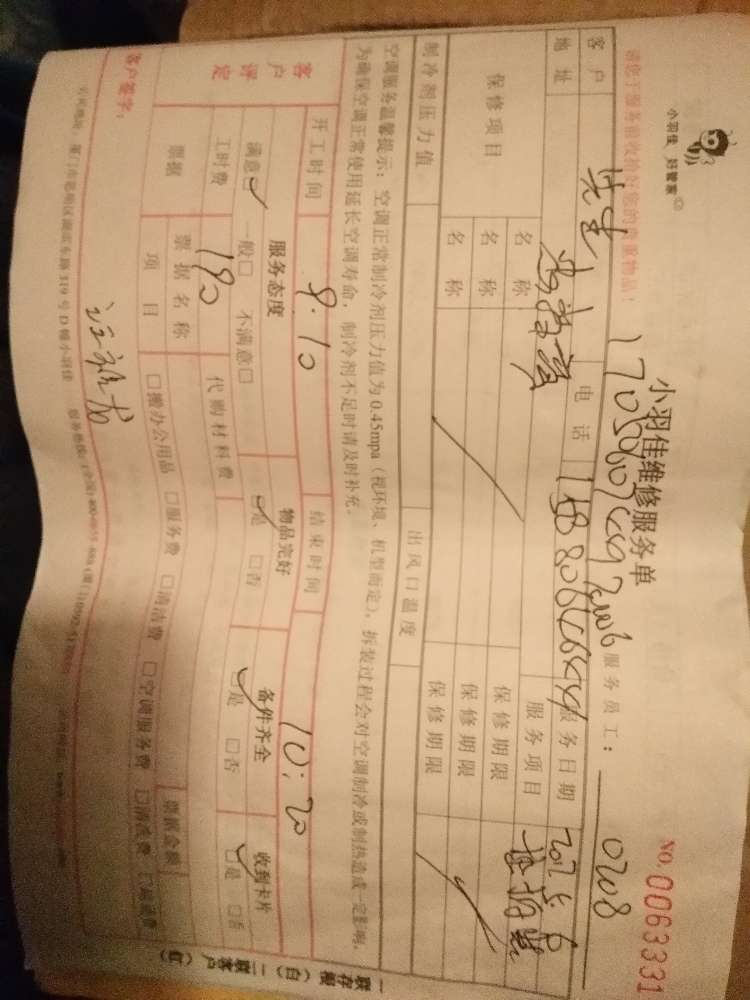 小羽佳 好管家
小羽佳维修服务单
NO. 0063331
请您于服务前收拾好您的贵重物品！
服务员工： 0208
客户 电话 服务日期
地址 服务项目
保修项目 名称 保修期限
名称 保修期限
名称 保修期限
制冷剂压力值 出风口温度
空调服务温馨提示：空调正常制冷剂压力值为0.45mpa（视环境、机型而定），拆装过程会对空调制冷或制热造成一定影响，
为确保空调正常使用延长空调寿命，制冷剂不足时请及时补充。
开工时间 9:10 结束时间 10:20
客户评定 服务态度 物品完好 备件齐全 收到卡片
满意☑ 一般□ 不满意□ ☑是 □否 ☑是 □否 ☑是 □否
工时费 190 代购材料费
票据 票据名称 票据金额
项目 □搬办公用品 □服务费 □清洁费 □空调服务费 □清洗费
客户签字：
公司地址：厦门市思明区湖滨东路319号D幢小羽佳 服务热线：
一联存根（白）二联客户（红）